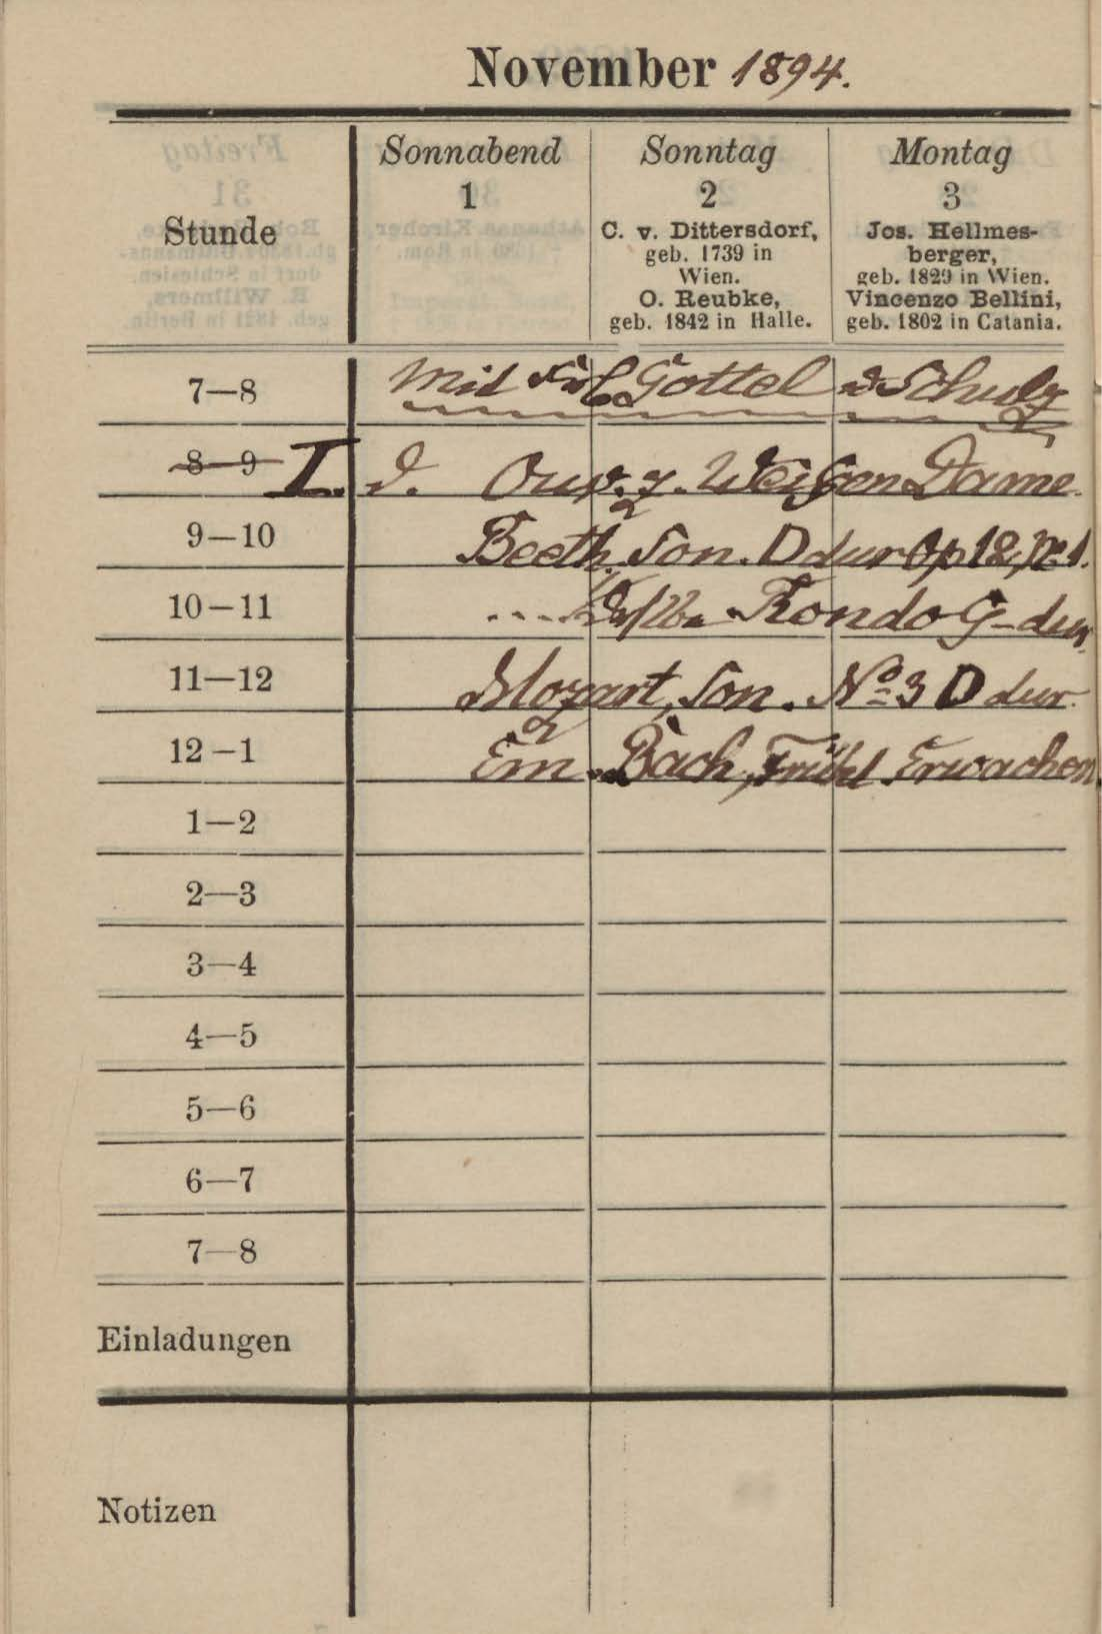 November 1894.
Stunde
Sonnabend
1
Sonntag
2
C. v. Dittersdorf,
geb. 1739 in
Wien.
O. Reubke,
geb. 1842 in Halle.
Montag
3
Jos. Hellmes-
berger,
geb. 1829 in Wien.
Vincenzo Bellini,
geb. 1802 in Catania.
7—8 Mit Frl. Gottel & Schulz
8—9 I. d. Ouv. z. Weißen Dame.
9—10 Beeth. Son. D dur Op 12, No 1.
10—11 Rondo G-dur
11—12 Mozart, Son. No 3 D dur.
12—1 Em. Bach, Frühl. Erwachen
1—2
2—3
3—4
4—5
5—6
6—7
7—8
Einladungen
Notizen